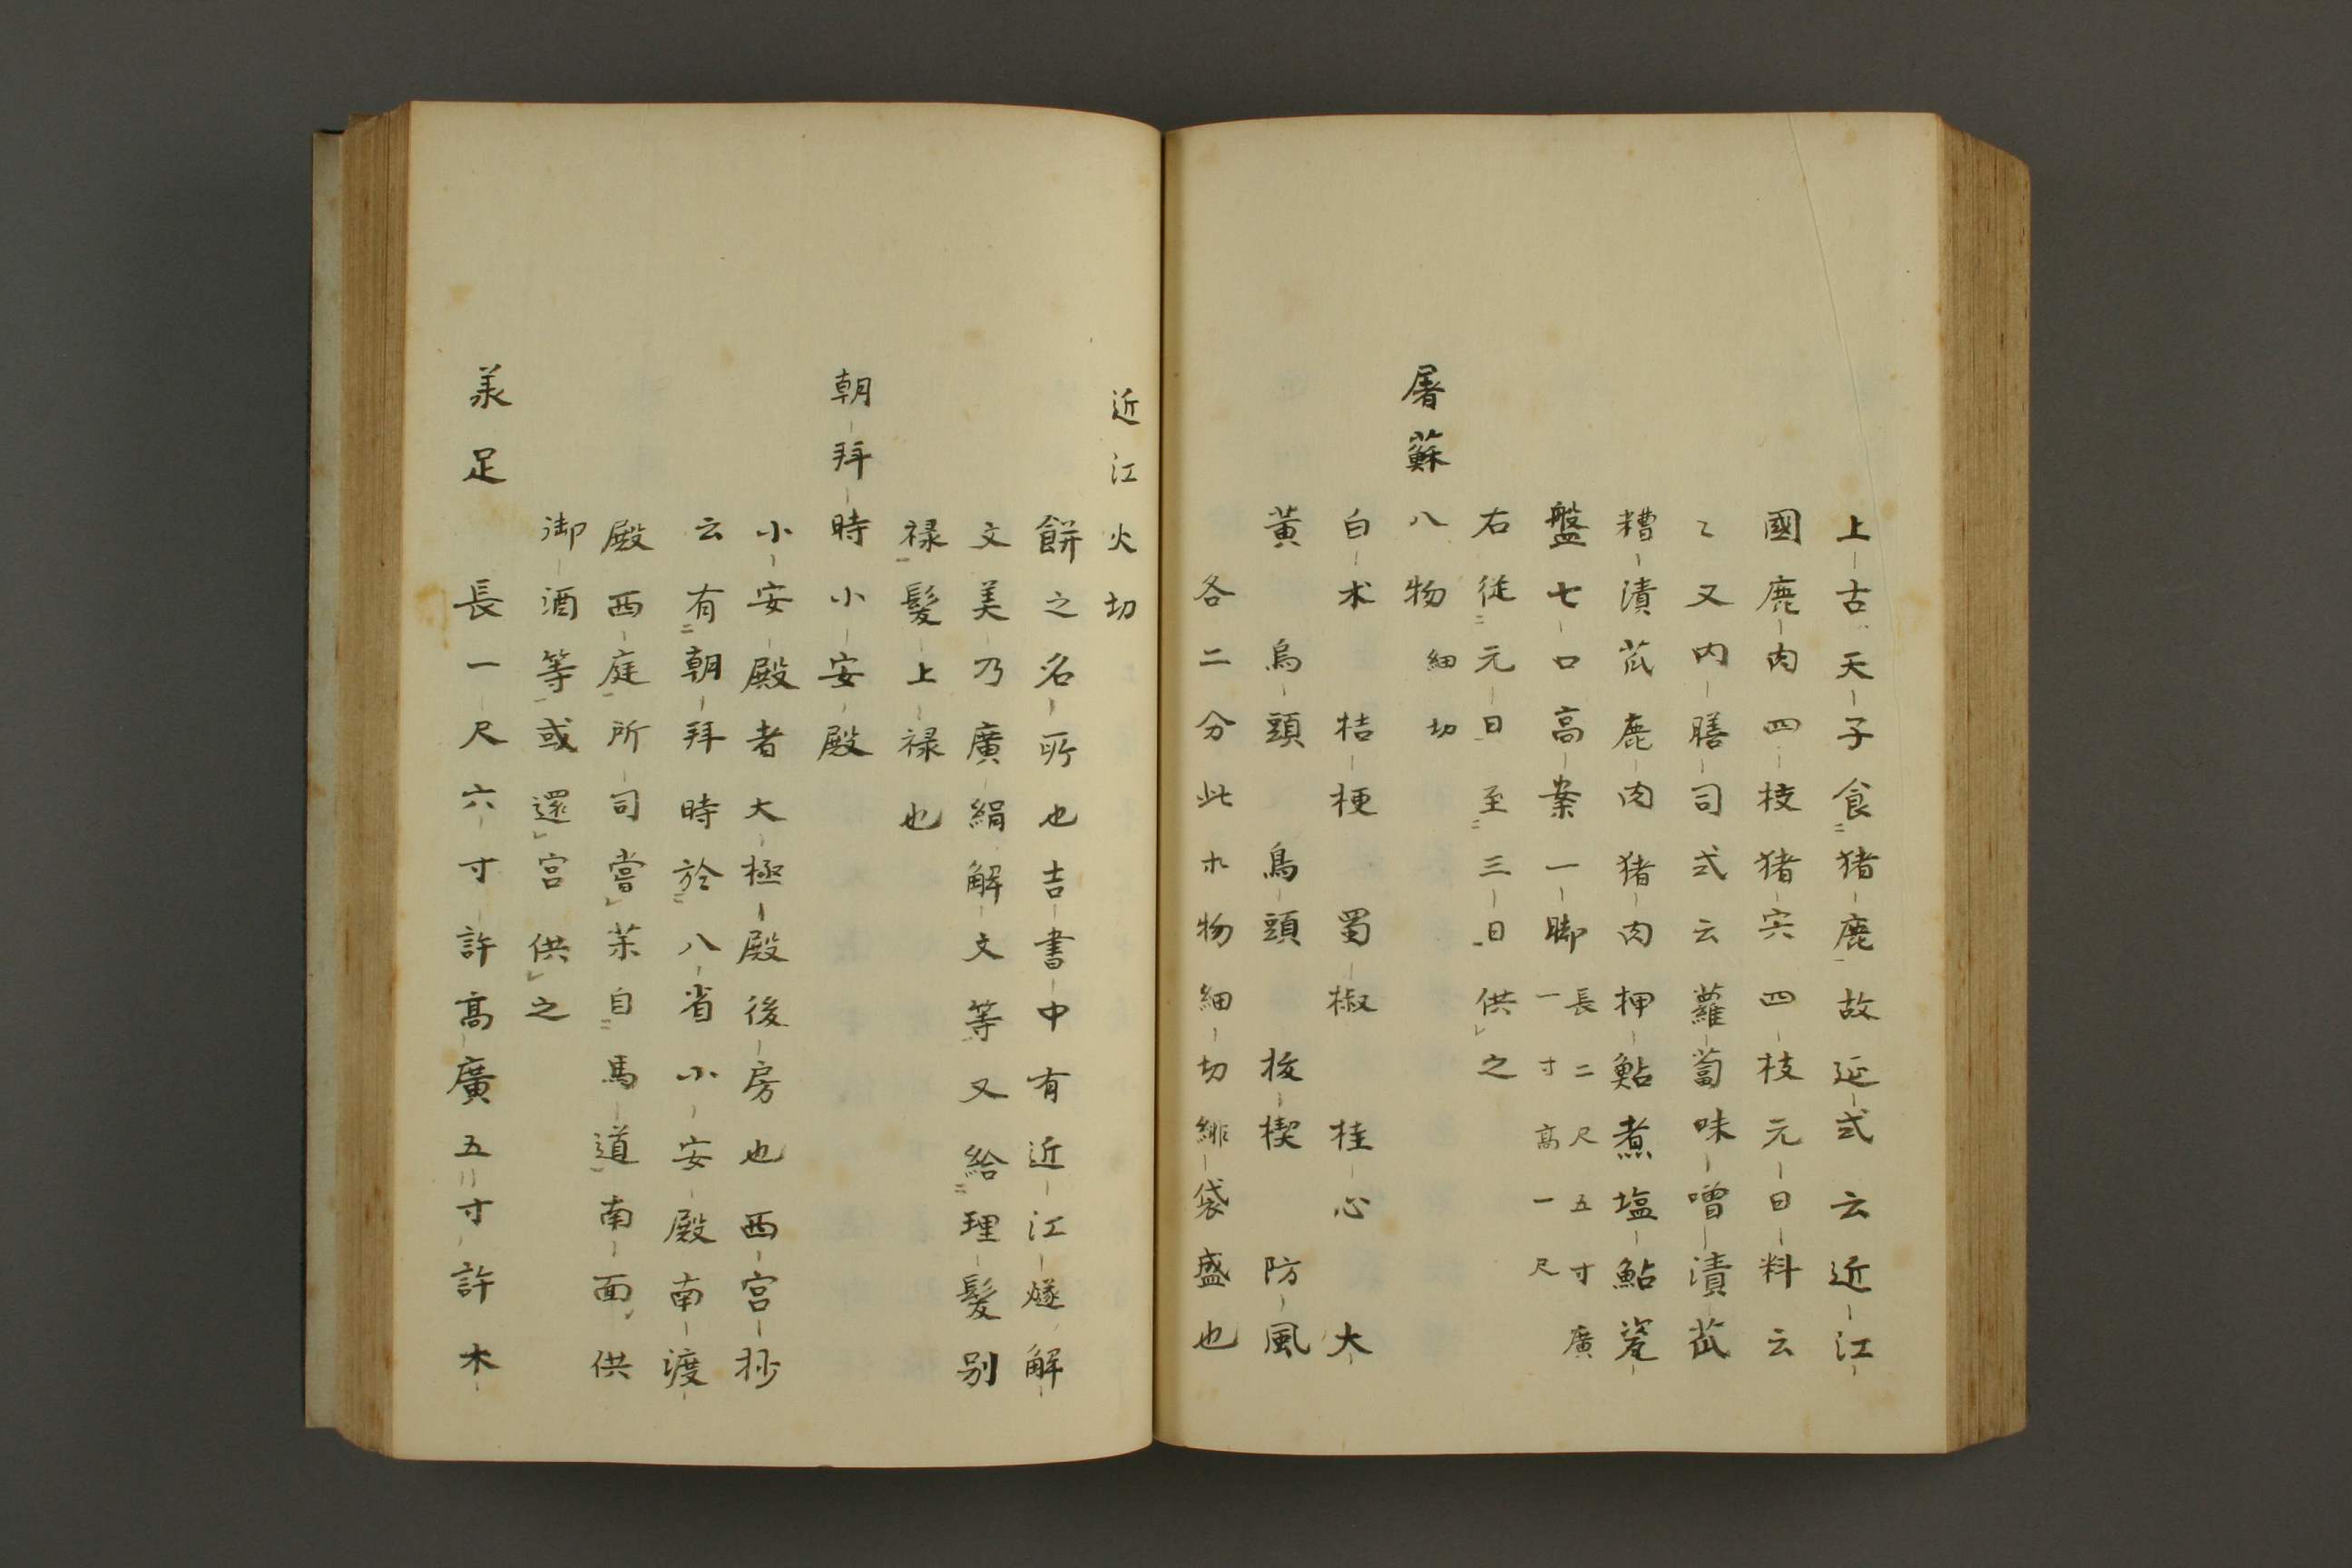 上古天子食猪鹿故延式云近江
國鹿肉四枝猪宍四枝元日料云
〻又内膳司式云蘿蔔味噌漬苽
糟漬苽鹿肉猪肉押鮎煮塩鮎瓷
盤七口高案一脚長二尺五寸廣
一寸高一尺
右従元日至三日供之
屠蘇八物細切
白朮 桔梗 蜀椒 桂心 大
黄 烏頭 鳥頭 抜楔 防風
各二分此ホ物細切緋袋盛也
近江火切
餅之名所也吉書中有近江燧解
文美乃廣絹解文等又給理髪別
禄髪上禄也
朝拜時小安殿
小安殿者大極殿後房也西宮抄
云有朝拜時於八省小安殿南渡
殿西庭所司嘗茱自馬道南面供
御酒等或還宮供之
羕足 長一尺六寸許髙廣五寸許木